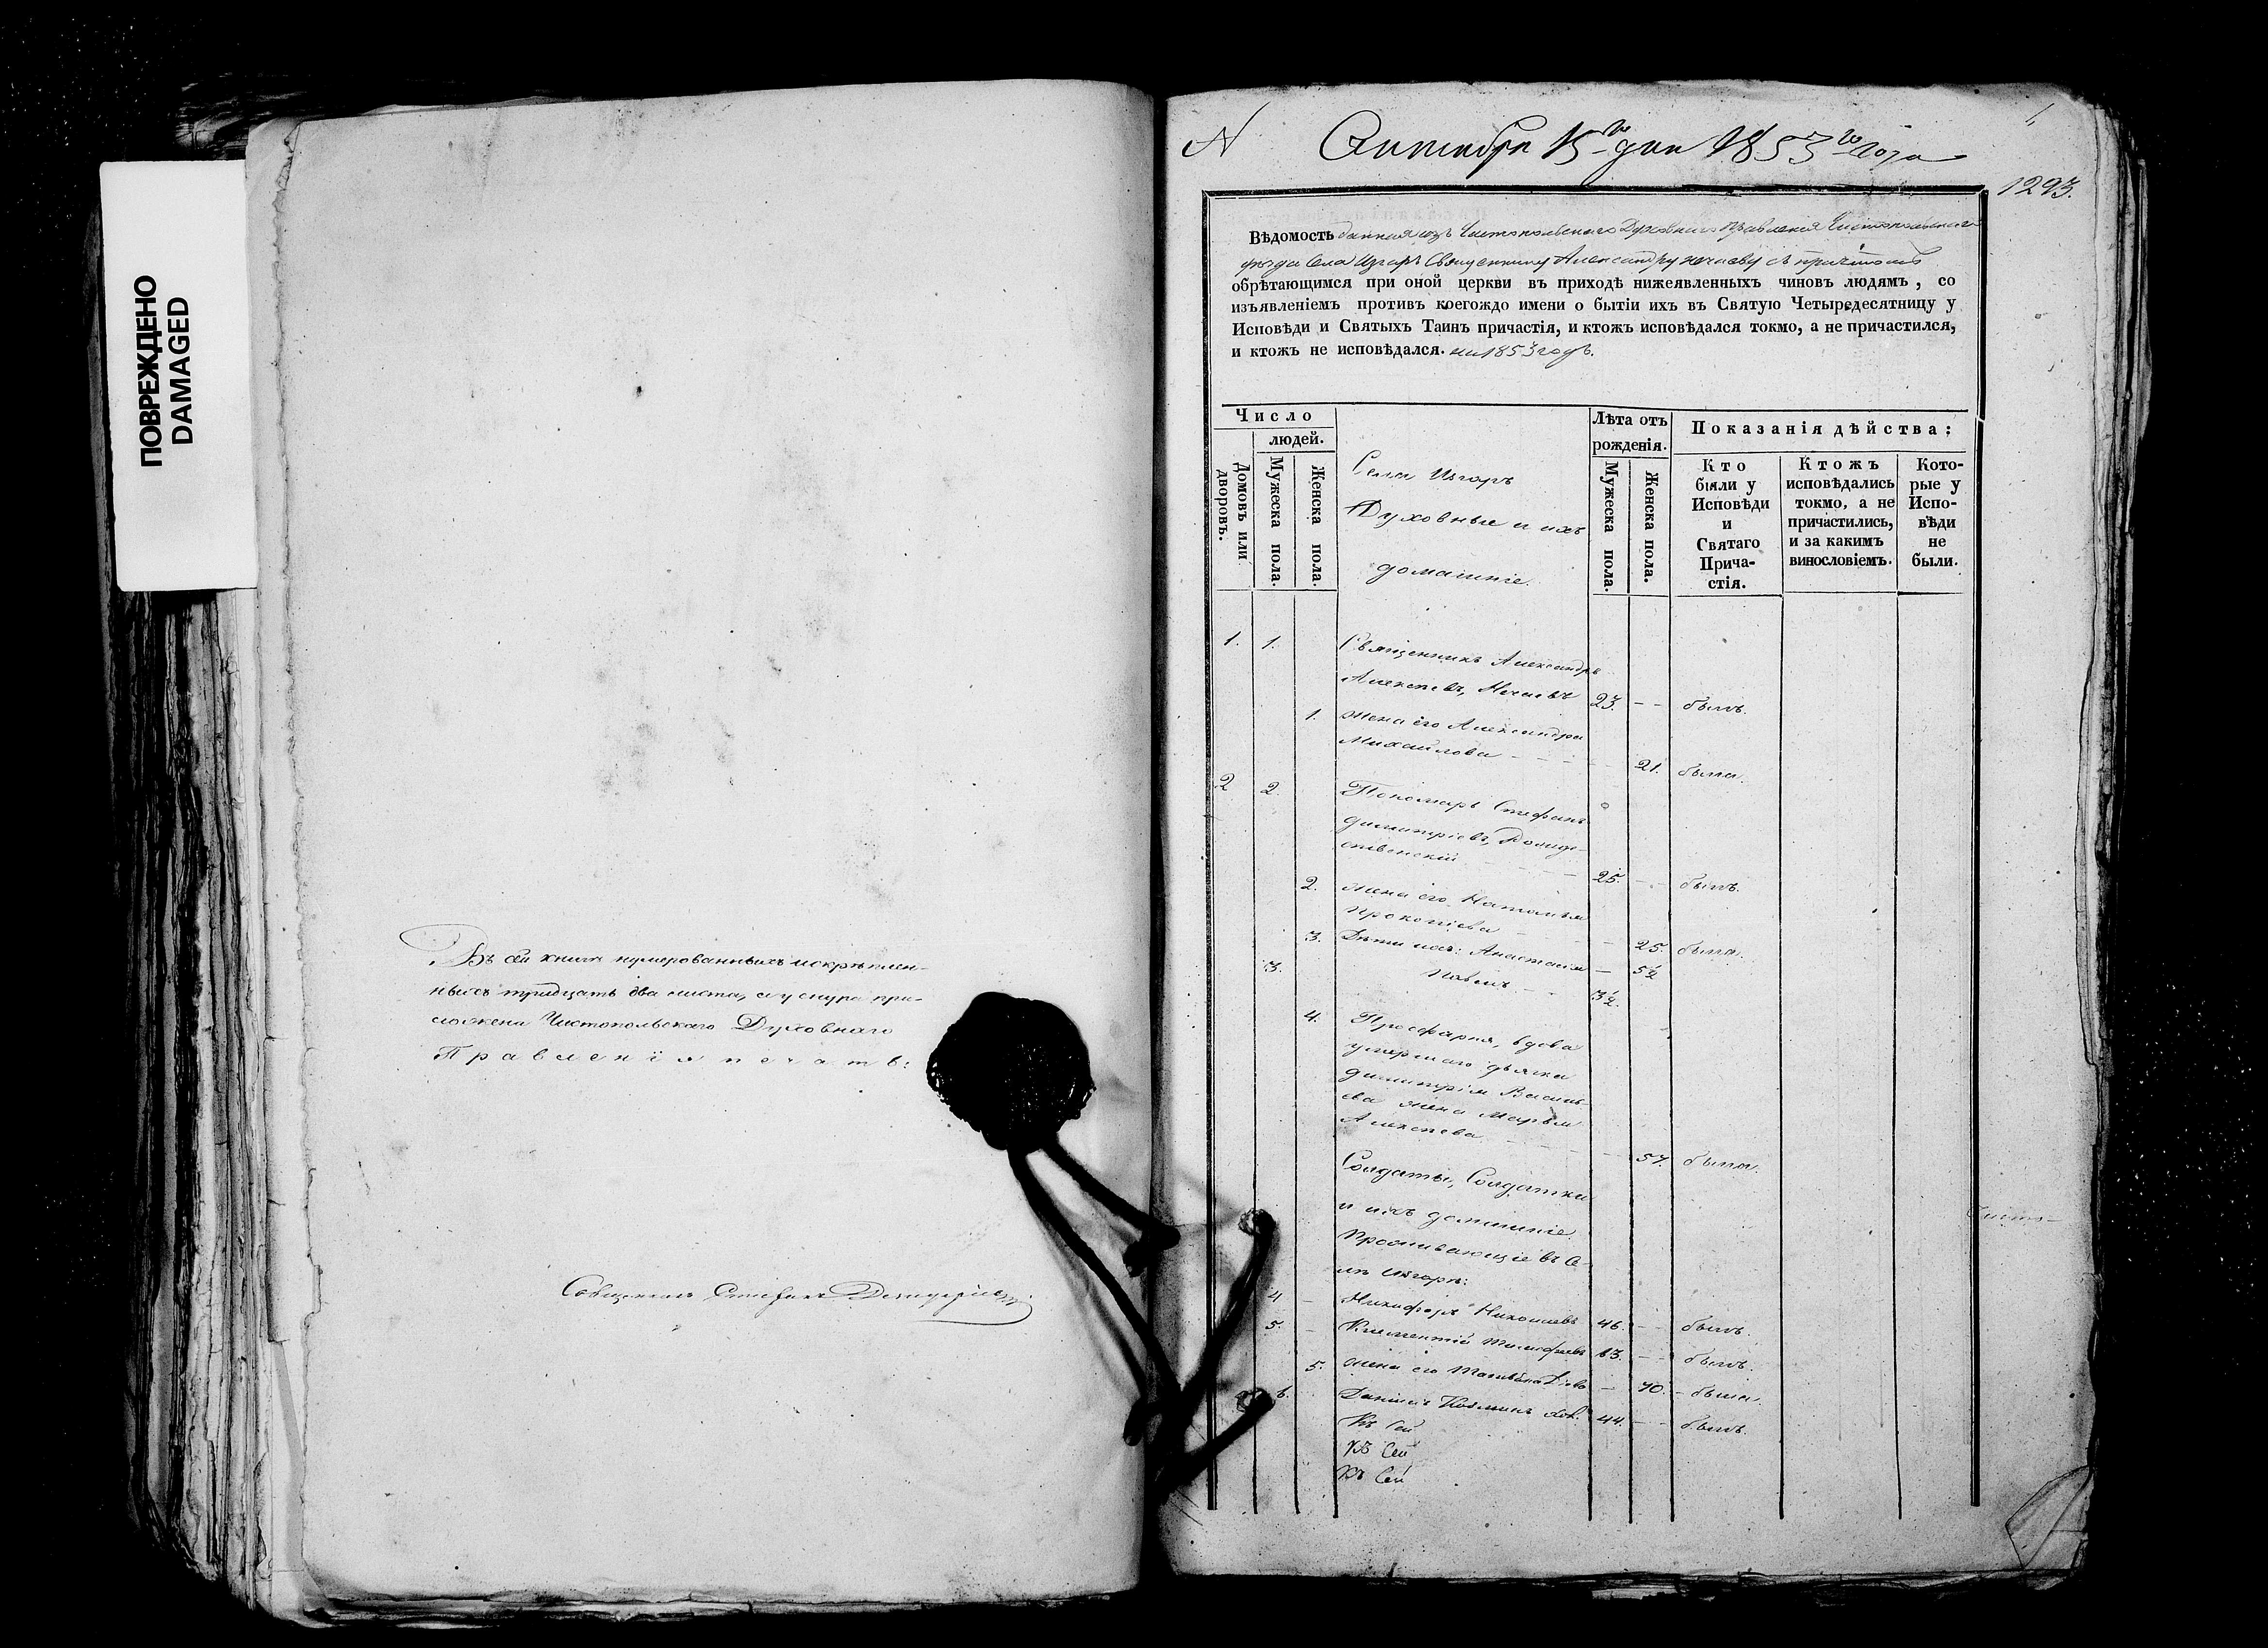 ПОВРЕЖДЕНО
DAMAGED
Въ сей книгѣ нумерованныхъ и скрѣплен-
ныхъ тридцать два листа, а у снура при-
ложена Чистопольскаго Духовнаго
Правленія печать:
Священникъ Стефанъ
Октября 15го дня 1853го года
1293.
Вѣдомость данная изъ Чистопольскаго Духовнаго Правленія Чистопольскаго
уѣзда села Изгаръ Священнику Александру Нечаеву съ причтомъ
обрѣтающимся при оной церкви въ приходѣ нижеявленныхъ чиновъ людямъ, со
изъявленіемъ противъ коегождо имени о бытіи ихъ въ Святую Четыредесятницу у
Исповѣди и Святыхъ Таинъ причастія, и ктожъ исповѣдался токмо, а не причастился,
и ктожъ не исповѣдался. на 1853 годъ.
Число
людей.
Домовъ или дворовъ.
Мужеска пола.
Женска пола.
Села Изгаръ
Духовные и ихъ
домашніе.
Лѣта отъ
рожденія.
Мужеска пола.
Женска пола.
Показанія дѣйства:
Кто
были у
Исповѣди
и
Святаго
Прича-
стія.
Ктожъ
исповѣдались
токмо, а не
причастились,
и за какимъ
винословіемъ.
Кото-
рые у
Испо-
вѣди
не
были.
1. 1. Священникъ Александръ
Алексѣевъ, Нечаевъ 23. - - былъ.
1. Жена его Александра
Михайлова - - - - 21. была.
2 2. Пономарь Стефанъ
Димитріевъ, Рожде-
ственскій - - - 25. - - былъ.
2. Жена его Наталья
Прокопіева - - - 25. была.
3. Дѣти ихъ: Анастасія - 5½
3. Павелъ - - 3½.
4. Просфорня, вдова
умершаго дьячка
Димитрія Василь-
ева жена Марья
Алексѣева - - - 57. была.
Солдаты, Солдатки
и ихъ домашніе
Проживающіе въ Се-
лѣ Изгарѣ:
4 - Никифоръ Николаевъ 46. - - былъ.
5. - Климентій Тимофеевъ 63. - - былъ.
5. Жена его - 70. - была.
6. Даніилъ Козминъ 44. - - былъ.
Къ Сей
Къ Сей
Къ Сей
Чисто-